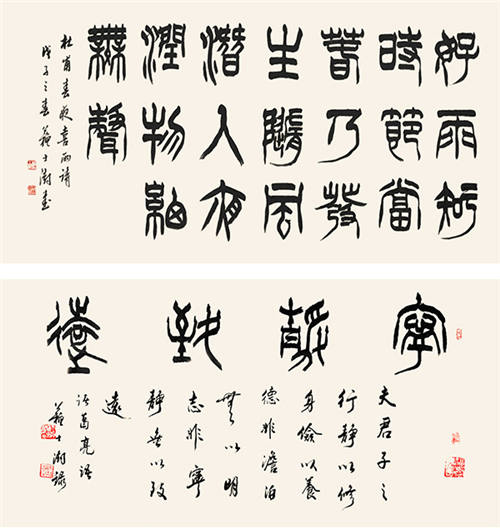 好雨知
時節當
春乃發
生隨風
潛入夜
潤物細
無聲
杜甫春夜喜雨詩
戊子之春蘇士澍書
寧靜致遠
夫君子之
行靜以修
身儉以養
德非澹泊
無以明
志非寧
靜無以致
遠
諸葛亮語
蘇士澍錄